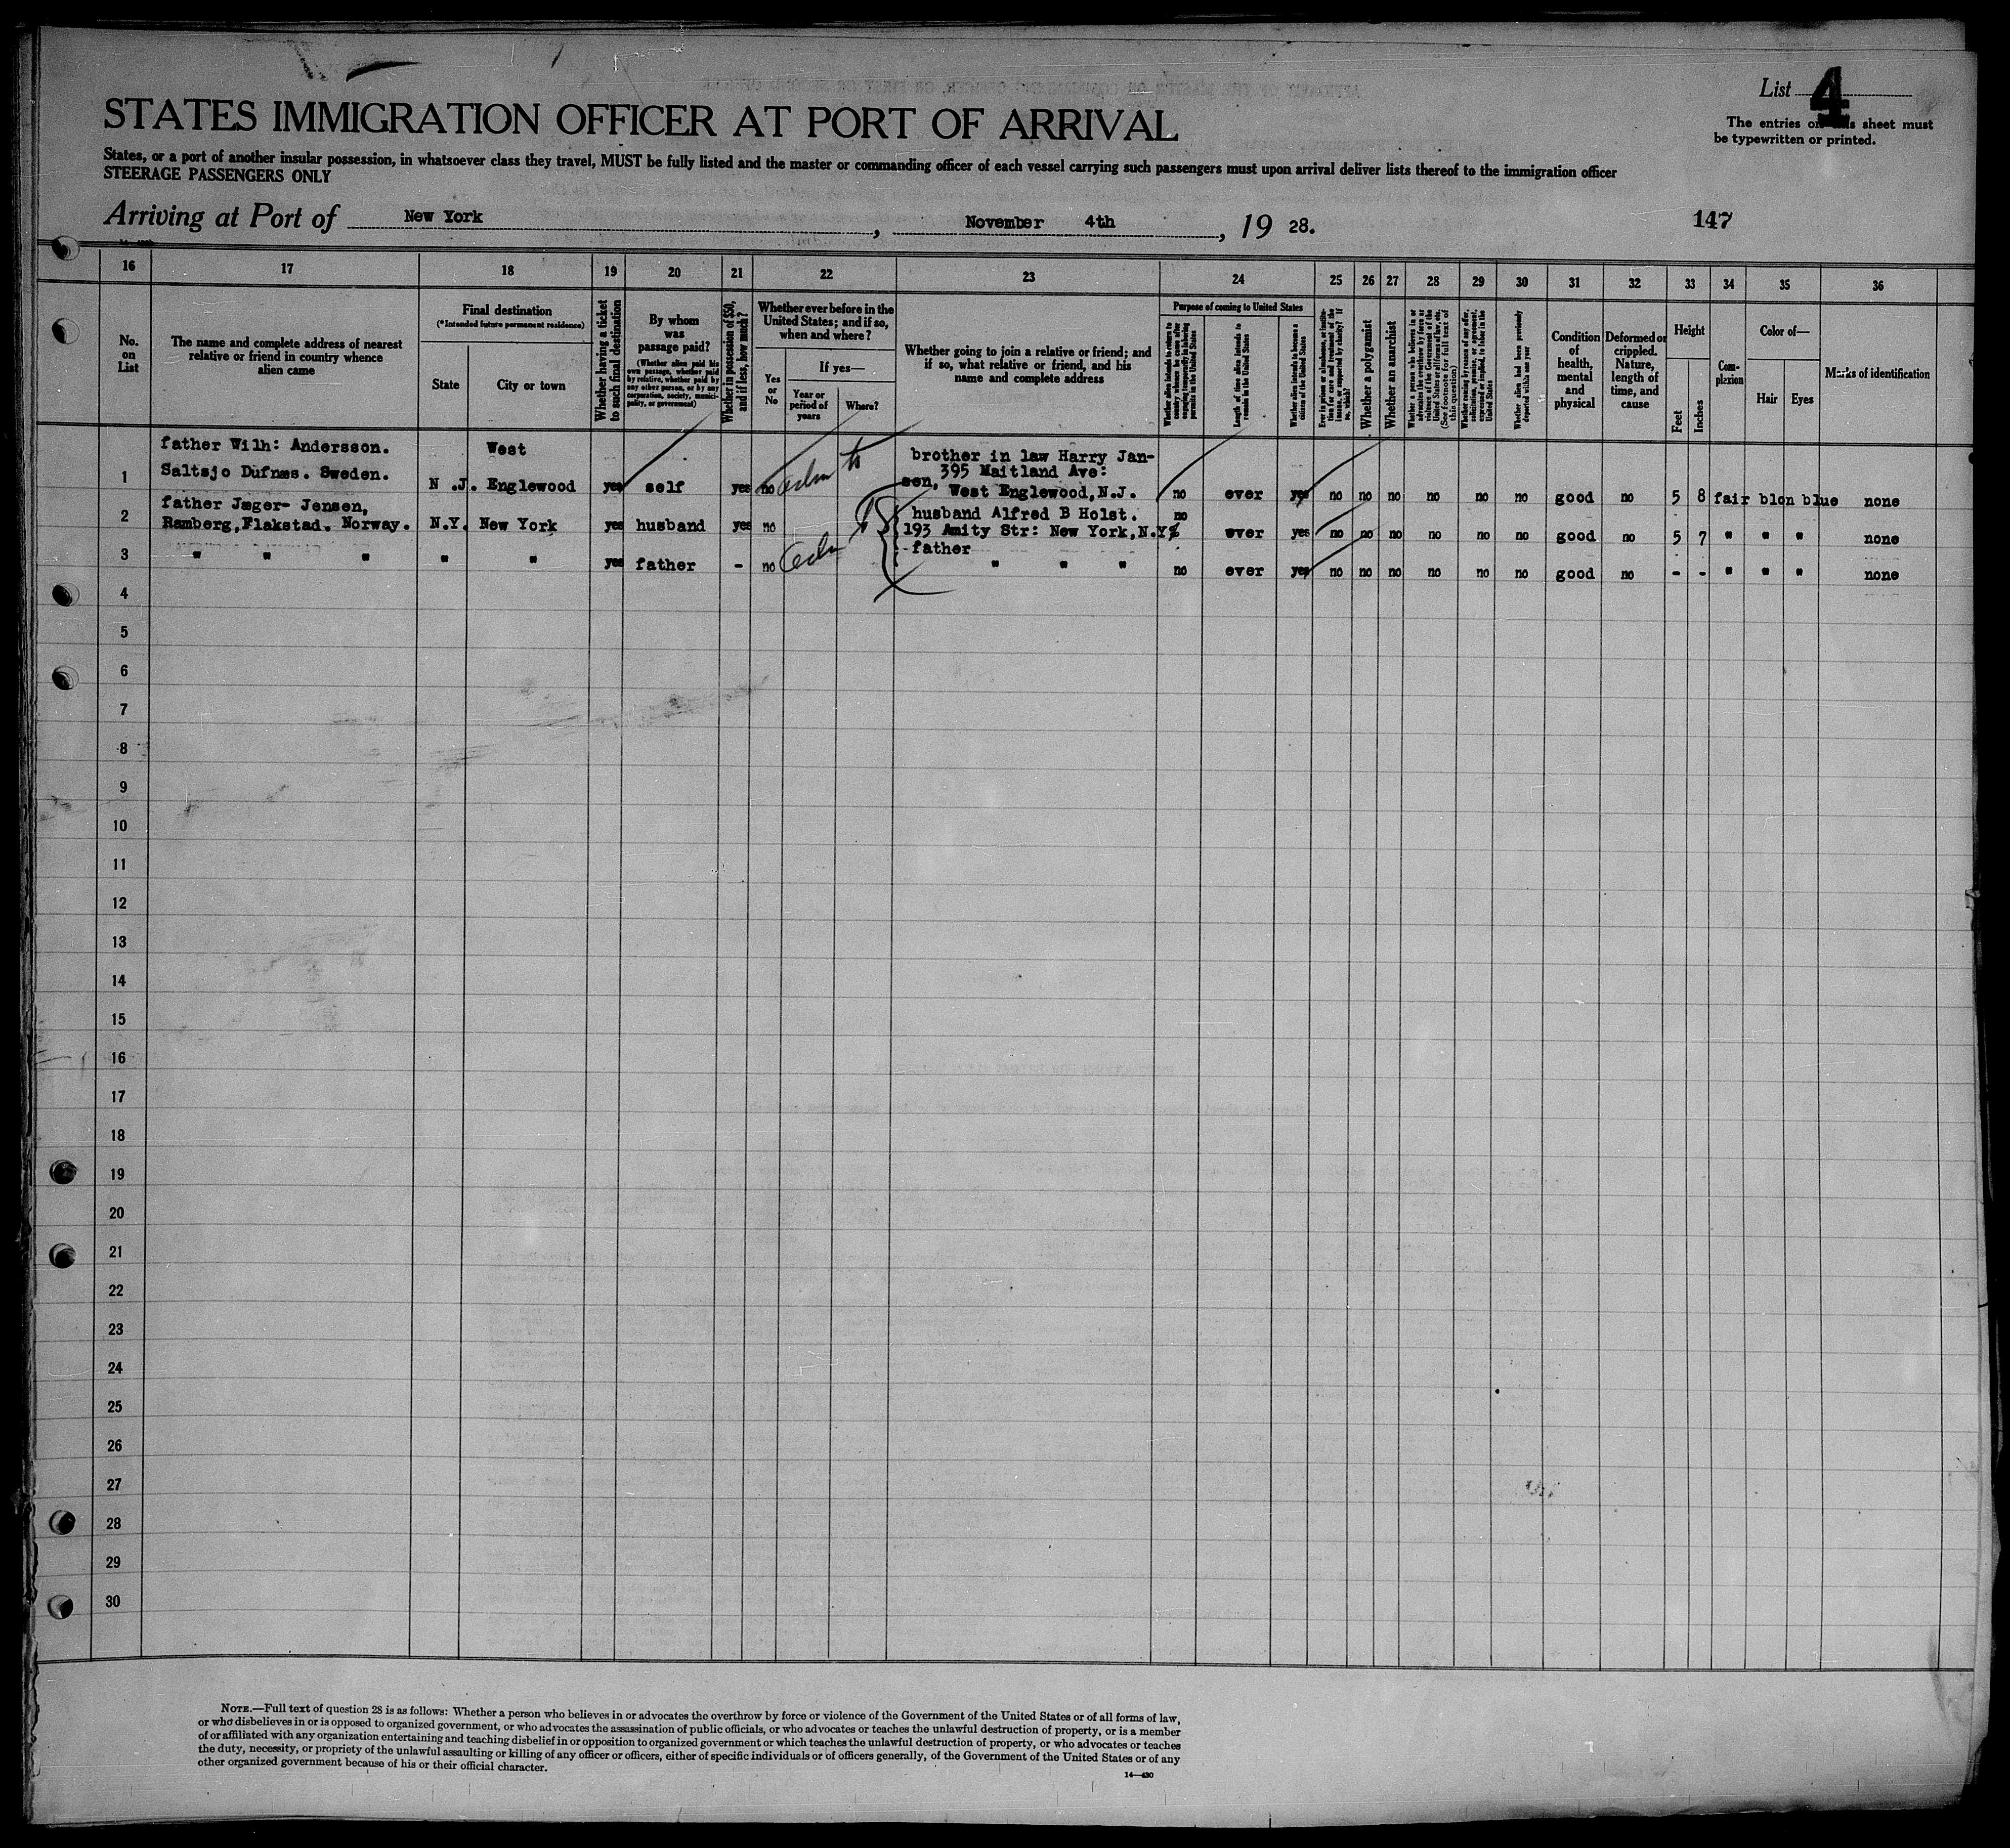 List 4
The entries on this sheet must
be typewritten or printed.
STATES IMMIGRATION OFFICER AT PORT OF ARRIVAL
States, or a port of another insular possession, in whatsoever class they travel, MUST be fully listed and the master or commanding officer of each vessel carrying such passengers must upon arrival deliver lists thereof to the immigration officer
STEERAGE PASSENGERS ONLY
Arriving at Port of New York, November 4th, 19 28.
147
16 17 18 19 20 21 22 23 24 25 26 27 28 29 30 31 32 33 34 35 36
No. on List
The name and complete address of nearest relative or friend in country whence alien came
Final destination
(*Intended future permanent residence)
State
City or town
Whether having a ticket to such final destination
By whom was passage paid?
(Whether alien paid his own passage, whether paid by relative, whether paid by any other person, or by any corporation, society, municipality, or government)
Whether in possession of $50, and if less, how much?
Whether ever before in the United States; and if so, when and where?
Yes or No
If yes—
Year or period of years
Where?
Whether going to join a relative or friend; and if so, what relative or friend, and his name and complete address
Purpose of coming to United States
Whether alien intends to return to country whence he came after engaging temporarily in laboring pursuits in the United States
Length of time alien intends to remain in the United States
Whether alien intends to become a citizen of the United States
Ever in prison or almshouse, or institution for care and treatment of the insane, or supported by charity? If so, which?
Whether a polygamist
Whether an anarchist
(See footnote for full text of this question)
Whether coming by reason of any offer, solicitation, promise, or agreement, expressed or implied, to labor in the United States
Whether alien had been previously deported within one year
Condition of health, mental and physical
Deformed or crippled. Nature, length of time, and cause
Height
Feet
Inches
Complexion
Color of—
Hair
Eyes
Marks of identification
father Wilh: Andersson. West brother in law Harry Jan-
1 Saltsjo Dufnæs. Sweden. N .J. Englewood yes self yes no adm sen, 395 Maitland Ave:
West Englewood, N.J. no ever yes no no no no no no good no 5 8 fair blon blue none
father Jæger- Jensen, husband Alfred B Holst. no
2 Ramberg,Flakstad. Norway. N.Y. New York yes husband yes no 193 Amity Str: New York,N.Y. ever yes no no no no no no good no 5 7 " " " none
3 " " " " " yes father - no adm father
" " " no ever yes no no no no no no good no - - " " " none
4
5
6
7
8
9
10
11
12
13
14
15
16
17
18
19
20
21
22
23
24
25
26
27
28
29
30
NOTE.—Full text of question 28 is as follows: Whether a person who believes in or advocates the overthrow by force or violence of the Government of the United States or of all forms of law,
or who disbelieves in or is opposed to organized government, or who advocates the assassination of public officials, or who advocates or teaches the unlawful destruction of property, or is a member
of or affiliated with any organization entertaining and teaching disbelief in or opposition to organized government or which teaches the unlawful destruction of property, or who advocates or teaches
the duty, necessity, or propriety of the unlawful assaulting or killing of any officer or officers, either of specific individuals or of officers generally, of the Government of the United States or of any
other organized government because of his or their official character.
14—430